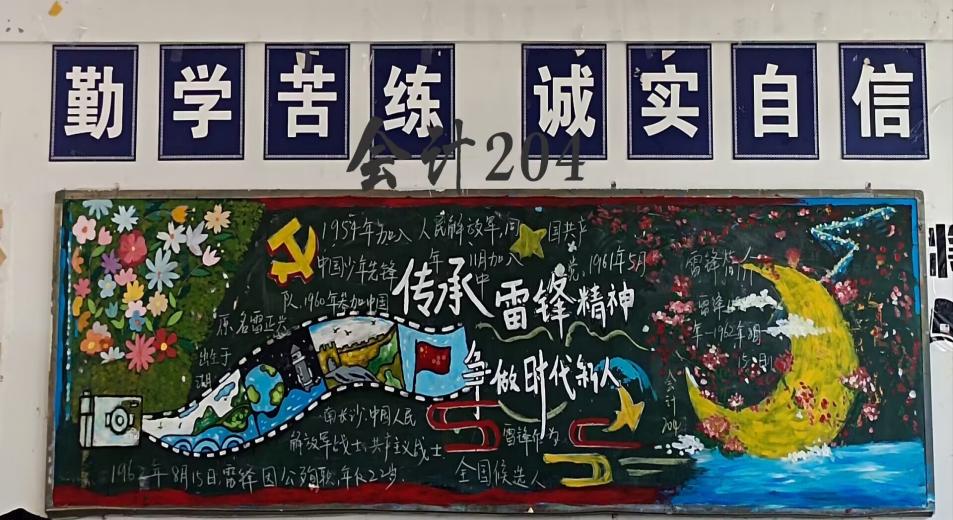 勤学苦练 诚实自信
会计204
1954年加入人民解放军,同
国共产
中国少年先锋
年 11月加入
党,1961年5月
队,1960年参加中国
传承
中
雷锋精神
雷锋
原名雷正兴
年—1962年8月
出生于
15日
湖
争做时代新人
南长沙.中国人民
解放军战士,共产主义战士
雷锋作为
会计204
1962年8月15日,雷锋因公殉职,年仅22岁.
全国候选人